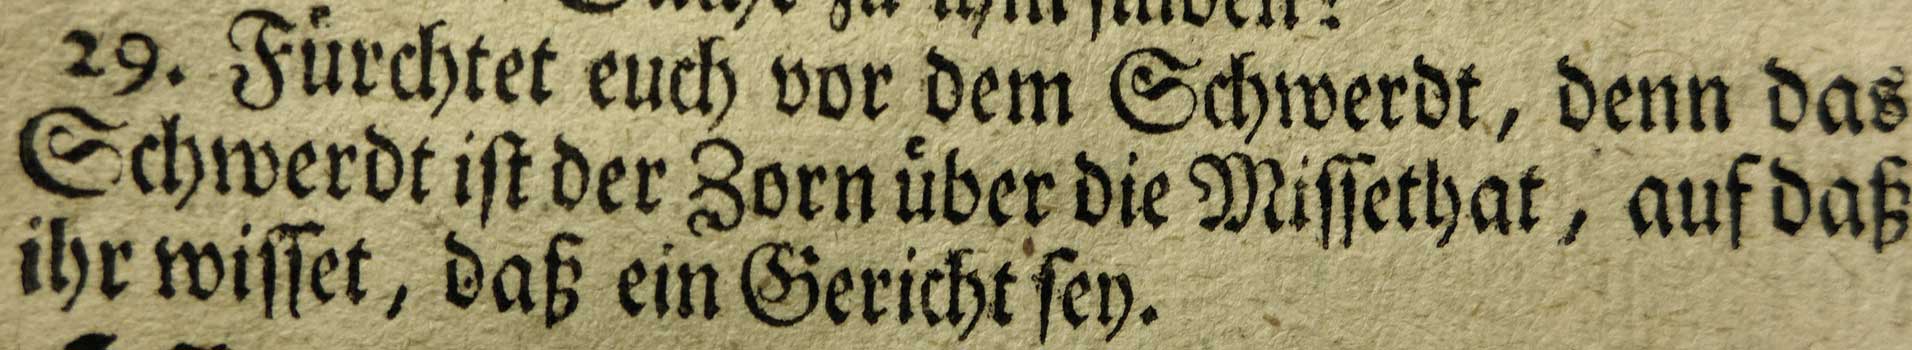 zu ihm finden!
29. Fürchtet euch vor dem Schwerdt, denn das
Schwerdt ist der Zorn über die Missethat, auf daß
ihr wisset, daß ein Gericht sey.